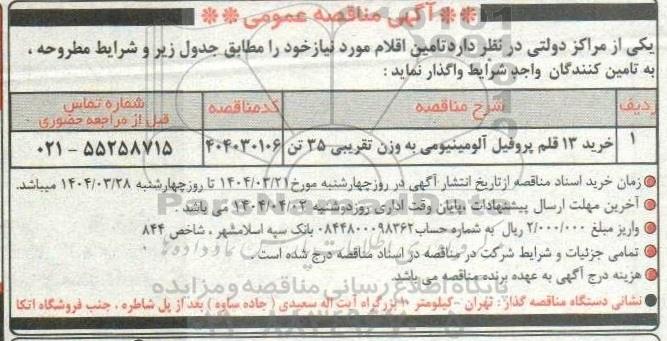 ** آگهی مناقصه عمومی **
یکی از مراکز دولتی در نظر دارد تامین اقلام مورد نیاز خود را مطابق جدول زیر و شرایط مطروحه ،
به تامین کنندگان واجد شرایط واگذار نماید :
ردیف شرح مناقصه کد مناقصه شماره تماس قبل از مراجعه حضوری
۱ خرید ۱۳ قلم پروفیل آلومینیومی به وزن تقریبی ۳۵ تن ۴۰۴۰۳۰۱۰۶ ۵۵۲۵۸۷۱۵ - ۰۲۱
● زمان خرید اسناد مناقصه از تاریخ انتشار آگهی در روز چهارشنبه مورخ ۱۴۰۴/۰۳/۲۱ تا روز چهارشنبه ۱۴۰۴/۰۳/۲۸ میباشد.
● آخرین مهلت ارسال پیشنهادات پایان وقت اداری روز دوشنبه ۱۴۰۴/۰۴/۰۲ می باشد .
● واریز مبلغ ۲/۰۰۰/۰۰۰ ریال به شماره حساب ۰۸۴۴۸۰۰۰۹۸۳۶۲ بانک سپه اسلامشهر ، شاخص ۸۴۴
● تمامی جزئیات و شرایط شرکت در مناقصه در اسناد مناقصه درج شده است .
● هزینه درج آگهی به عهده برنده مناقصه می باشد.
● نشانی دستگاه مناقصه گذار : تهران -کیلومتر ۱۰ بزرگراه آیت اله سعیدی ( جاده ساوه ) بعد از پل شاطره . جنب فروشگاه اتکا
ParsNamadData
پایگاه اطلاع رسانی مناقصه و مزایده